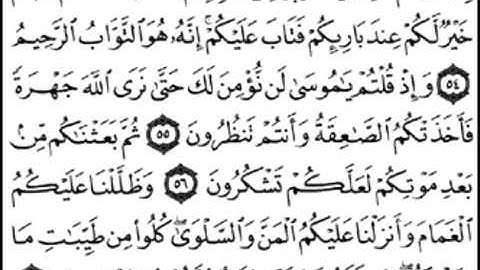 خَيْرٌ لَّكُمْ عِندَ بَارِئِكُمْ فَتَابَ عَلَيْكُمْ ۚ إِنَّهُۥ هُوَ التَّوَّابُ الرَّحِيمُ
٥٤ وَإِذْ قُلْتُمْ يَٰمُوسَىٰ لَن نُّؤْمِنَ لَكَ حَتَّىٰ نَرَى اللَّهَ جَهْرَةً
فَأَخَذَتْكُمُ الصَّٰعِقَةُ وَأَنتُمْ تَنظُرُونَ ٥٥ ثُمَّ بَعَثْنَٰكُم مِّنۢ
بَعْدِ مَوْتِكُمْ لَعَلَّكُمْ تَشْكُرُونَ ٥٦ وَظَلَّلْنَا عَلَيْكُمُ
الْغَمَامَ وَأَنزَلْنَا عَلَيْكُمُ الْمَنَّ وَالسَّلْوَىٰ ۖ كُلُوا۟ مِن طَيِّبَٰتِ مَا